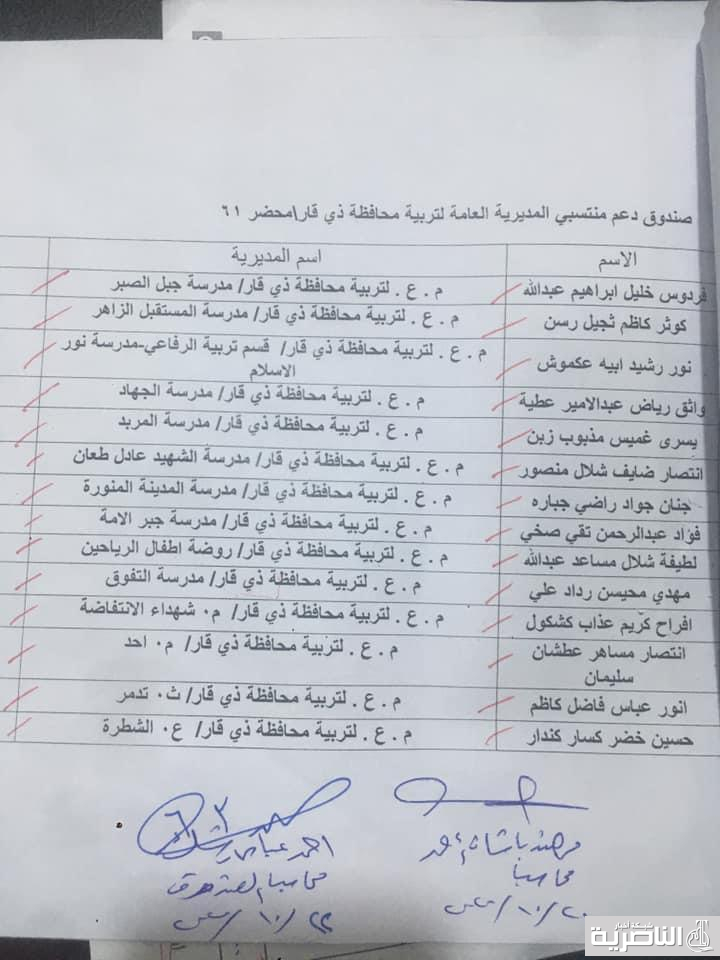 صندوق دعم منتسبي المديرية العامة لتربية محافظة ذي قار\محضر ٦١
الاسم اسم المديرية
فردوس خليل ابراهيم عبدالله م . ع . لتربية محافظة ذي قار/ مدرسة جبل الصبر
كوثر كاظم ثجيل رسن م . ع . لتربية محافظة ذي قار/ مدرسة المستقبل الزاهر
نور رشيد ابيه عكموش م . ع . لتربية محافظة ذي قار/ قسم تربية الرفاعي-مدرسة نور
الاسلام
واثق رياض عبدالامير عطية م . ع . لتربية محافظة ذي قار/ مدرسة الجهاد
يسرى غميس مذبوب زبن م . ع . لتربية محافظة ذي قار/ مدرسة المربد
انتصار ضايف شلال منصور م . ع . لتربية محافظة ذي قار/ مدرسة الشهيد عادل طعان
جنان جواد راضي جباره م . ع . لتربية محافظة ذي قار/ مدرسة المدينة المنورة
فؤاد عبدالرحمن تقي صخي م . ع . لتربية محافظة ذي قار/ مدرسة جبر الامة
لطيفة شلال مساعد عبدالله م . ع . لتربية محافظة ذي قار/ روضة اطفال الرياحين
مهدي محيسن رداد علي م . ع . لتربية محافظة ذي قار/ مدرسة التفوق
افراح كريم عذاب كشكول م . ع . لتربية محافظة ذي قار/ م٠ شهداء الانتفاضة
انتصار مساهر عطشان م . ع . لتربية محافظة ذي قار/ م٠ احد
سليمان
انور عباس فاضل كاظم م . ع . لتربية محافظة ذي قار/ ث٠ تدمر
حسين خضر كسار كندار م . ع . لتربية محافظة ذي قار/ ع٠ الشطرة
احمد عباس
محاسبا
٢٠/١٠/
٢٢/١٠/
شبكة اخبار
الناصرية